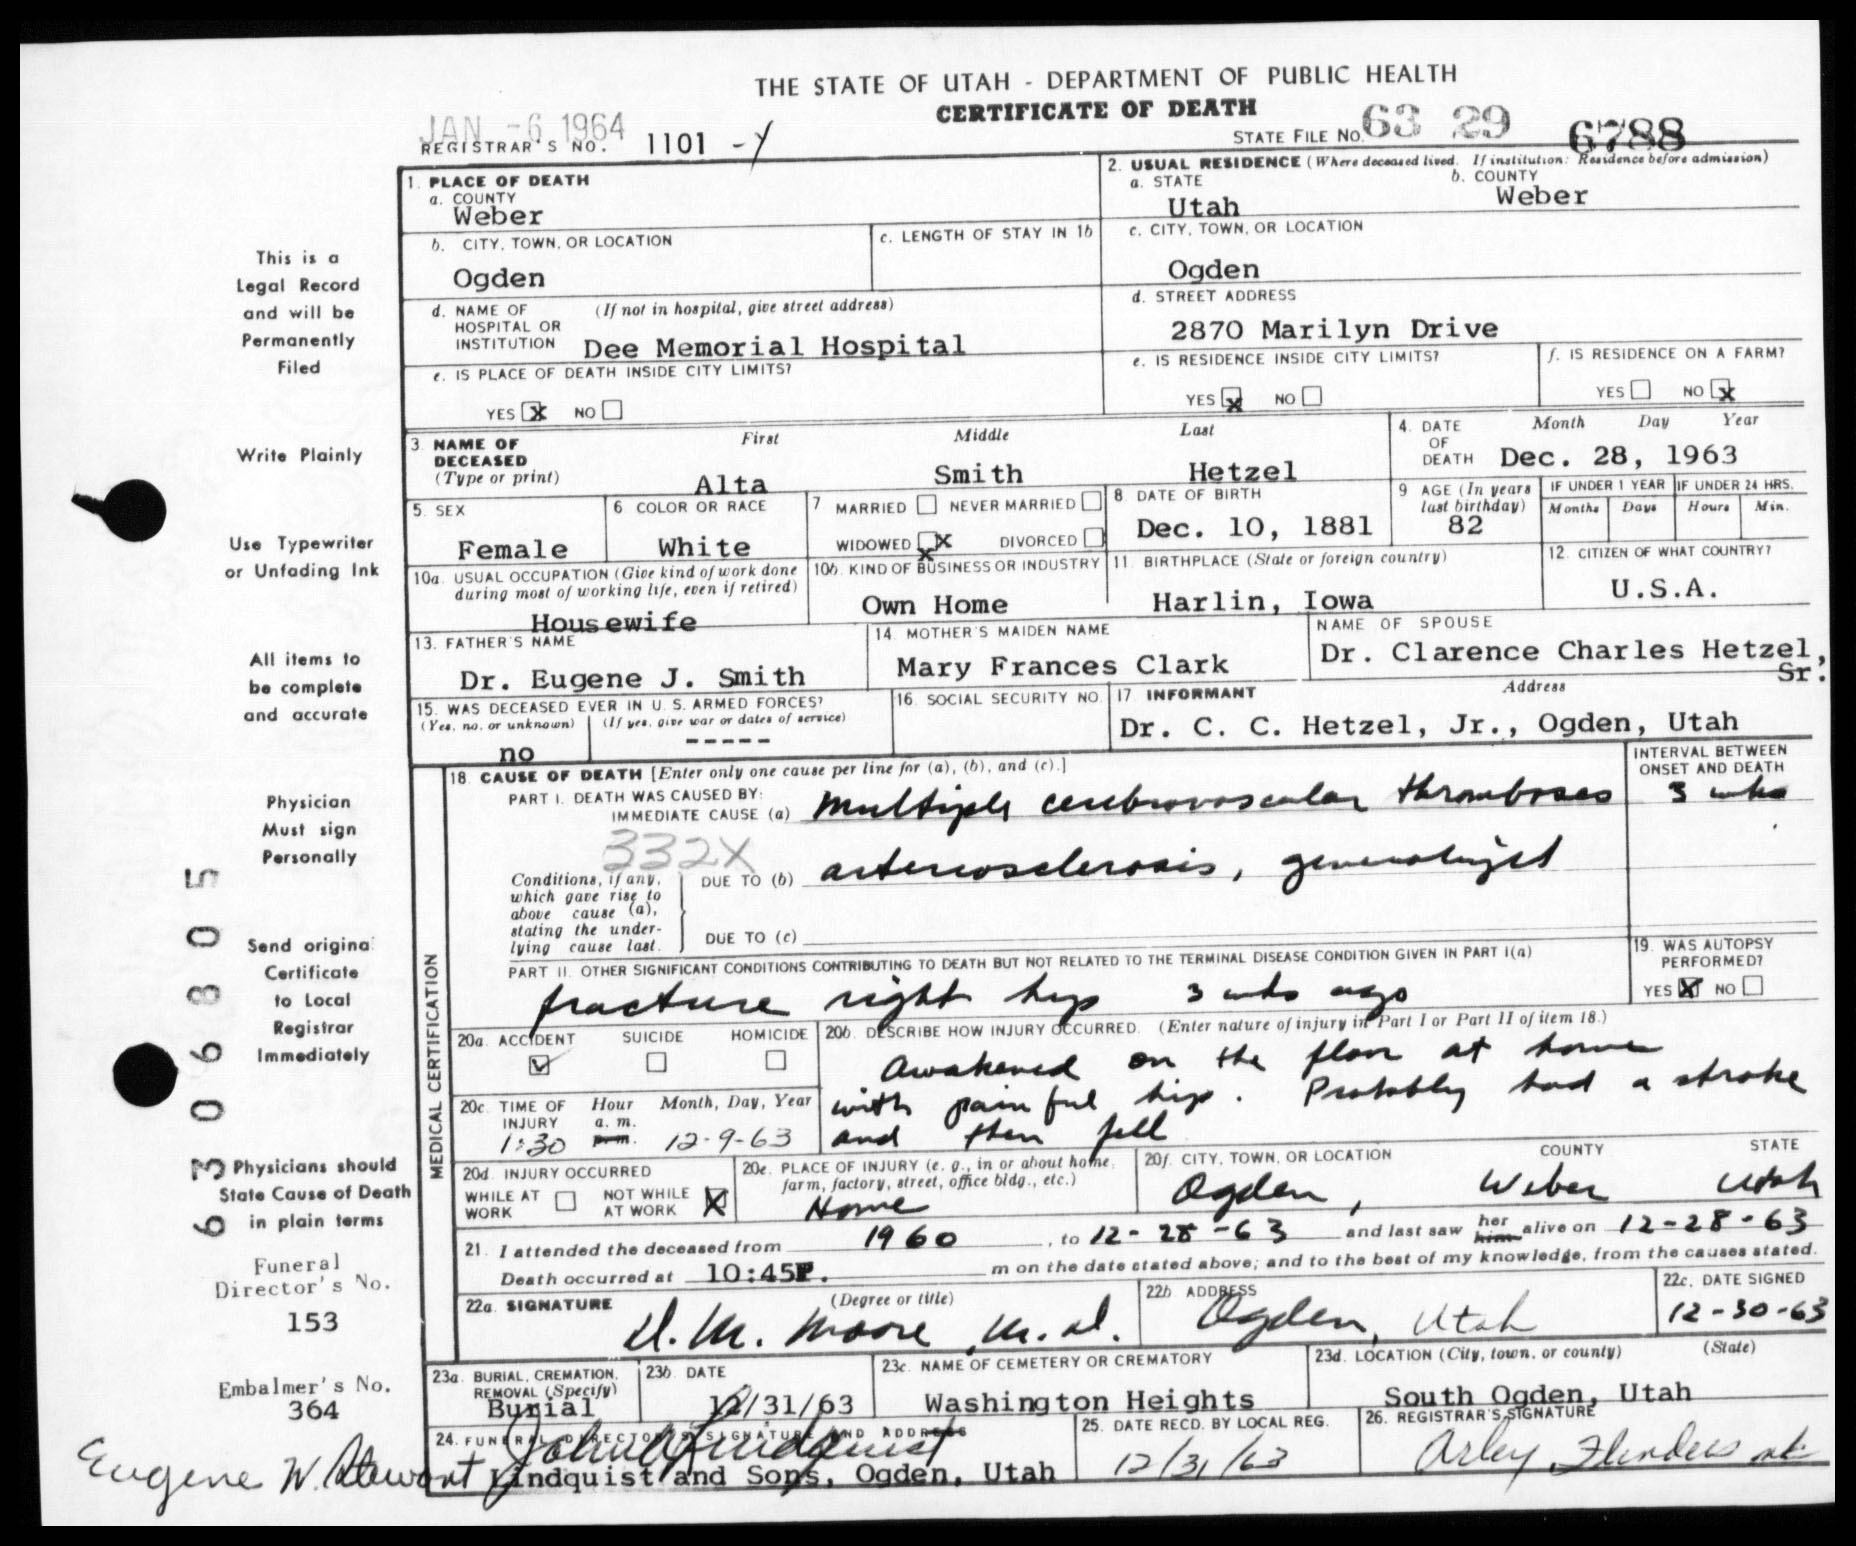 THE STATE OF UTAH - DEPARTMENT OF PUBLIC HEALTH
CERTIFICATE OF DEATH
JAN -6 1964
REGISTRAR'S NO. 1101 -Y
STATE FILE NO. 63 29 6788
1. PLACE OF DEATH
a. COUNTY
Weber
2. USUAL RESIDENCE (Where deceased lived. If institution: Residence before admission)
a. STATE
Utah
b. COUNTY
Weber
b. CITY, TOWN, OR LOCATION
Ogden
c. LENGTH OF STAY IN 1b
c. CITY, TOWN, OR LOCATION
Ogden
d. NAME OF HOSPITAL OR INSTITUTION (If not in hospital, give street address)
Dee Memorial Hospital
d. STREET ADDRESS
2870 Marilyn Drive
e. IS PLACE OF DEATH INSIDE CITY LIMITS?
YES X NO
e. IS RESIDENCE INSIDE CITY LIMITS?
YES X NO
f. IS RESIDENCE ON A FARM?
YES NO X
3. NAME OF DECEASED (Type or print)
First Middle Last
Alta Smith Hetzel
4. DATE OF DEATH
Month Day Year
Dec. 28, 1963
5. SEX
Female
6 COLOR OR RACE
White
7 MARRIED NEVER MARRIED
WIDOWED X DIVORCED
8 DATE OF BIRTH
Dec. 10, 1881
9 AGE (In years last birthday)
82
IF UNDER 1 YEAR
Months Days
IF UNDER 24 HRS.
Hours Min.
10a. USUAL OCCUPATION (Give kind of work done during most of working life, even if retired)
Housewife
10b. KIND OF BUSINESS OR INDUSTRY
Own Home
11. BIRTHPLACE (State or foreign country)
Harlin, Iowa
12. CITIZEN OF WHAT COUNTRY?
U.S.A.
13. FATHER'S NAME
Dr. Eugene J. Smith
14. MOTHER'S MAIDEN NAME
Mary Frances Clark
NAME OF SPOUSE
Dr. Clarence Charles Hetzel, Sr.
15. WAS DECEASED EVER IN U. S. ARMED FORCES?
(Yes, no, or unknown) (If yes, give war or dates of service)
no -----
16. SOCIAL SECURITY NO.
17. INFORMANT Address
Dr. C. C. Hetzel, Jr., Ogden, Utah
MEDICAL CERTIFICATION
18. CAUSE OF DEATH [Enter only one cause per line for (a), (b), and (c).]
INTERVAL BETWEEN ONSET AND DEATH
PART I. DEATH WAS CAUSED BY:
IMMEDIATE CAUSE (a) Multiple cerebrovascular thromboses 3 wks
332X
Conditions, if any, which gave rise to above cause (a), stating the underlying cause last.
DUE TO (b) arteriosclerosis, generalized
DUE TO (c)
PART II. OTHER SIGNIFICANT CONDITIONS CONTRIBUTING TO DEATH BUT NOT RELATED TO THE TERMINAL DISEASE CONDITION GIVEN IN PART I(a)
fracture right hip 3 wks ago
19. WAS AUTOPSY PERFORMED?
YES X NO
20a. ACCIDENT SUICIDE HOMICIDE
20b. DESCRIBE HOW INJURY OCCURRED. (Enter nature of injury in Part I or Part II of item 18.)
Awakened on the floor at home
with painful hip. Probably had a stroke
and then fell
20c. TIME OF INJURY
Hour Month, Day, Year
a. m.
p. m.
1:30 12-9-63
20d. INJURY OCCURRED
WHILE AT WORK NOT WHILE AT WORK X
20e. PLACE OF INJURY (e. g., in or about home, farm, factory, street, office bldg., etc.)
Home
20f. CITY, TOWN, OR LOCATION COUNTY STATE
Ogden, Weber Utah
21. I attended the deceased from 1960, to 12-28-63 and last saw her him alive on 12-28-63
Death occurred at 10:45P. m on the date stated above; and to the best of my knowledge, from the causes stated.
22a. SIGNATURE (Degree or title)
D. M. Moore, M.D.
22b ADDRESS
Ogden, Utah
22c. DATE SIGNED
12-30-63
23a. BURIAL, CREMATION, REMOVAL (Specify)
Burial
23b DATE
12/31/63
23c. NAME OF CEMETERY OR CREMATORY
Washington Heights
23d. LOCATION (City, town, or county) (State)
South Ogden, Utah
24. FUNERAL DIRECTOR'S SIGNATURE AND ADDRESS
John A Lindquist
Eugene W. Stewart
Lindquist and Sons, Ogden, Utah
25. DATE RECD. BY LOCAL REG.
12/31/63
26. REGISTRAR'S SIGNATURE
Arley Flinders
This is a
Legal Record
and will be
Permanently
Filed
Write Plainly
Use Typewriter
or Unfading Ink
All items to
be complete
and accurate
Physician
Must sign
Personally
Send original
Certificate
to Local
Registrar
Immediately
Physicians should
State Cause of Death
in plain terms
Funeral
Director's No.
153
Embalmer's No.
364
63 06805